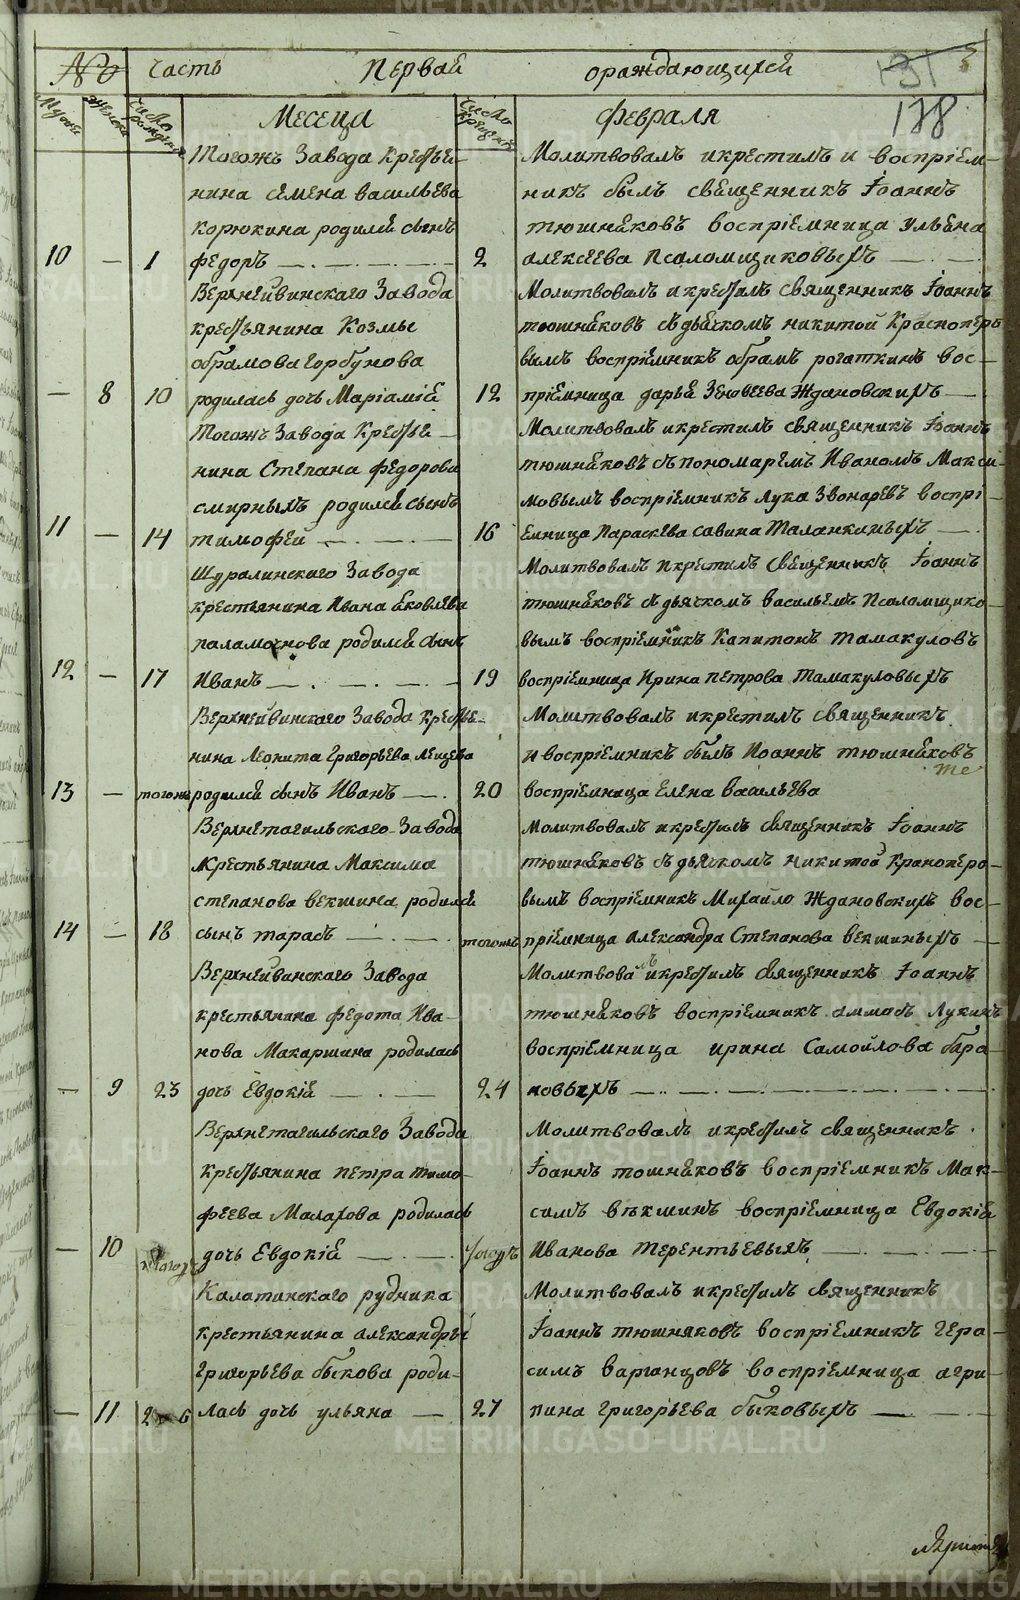 METRIKI.GASO-URAL.RU
№ Часть Первая ораждающихся 131
Мужеска Женска Число рождения Месеца Число крещения Февраля 138
Тогожъ Завода Крестья-
нина Семена Васильева
Корюкина родился сынъ
10 — 1 Федоръ 2
Молитвовалъ и крестилъ и воспрiем-
никъ былъ священникъ Iоаннъ
тюшняковъ воспрiемница Ульяна
алексеева Псаломщиковыхъ
Верхнейвинскаго Завода
крестьянина Козмы
обрамова Горбунова
— 8 10 родилась дочь Марiамiя 12
Молитвовалъ и крестилъ священникъ Iоаннъ
тюшняковъ съ дьячкомъ никитой Красноперо
вымъ воспрiемникъ обрамъ рогаткинъ вос-
прiемница дарья Зеновеева Ждановскихъ
Тогожъ Завода Крестья-
нина Степана Федорова
смирныхъ родился сынъ
11 — 14 тимофей 16
Молитвовалъ и крестилъ священникъ Iоаннъ
тюшняковъ съ пономаремъ Иваномъ Макси-
мовымъ воспрiемникъ лука Звонаревъ воспрi-
емница Параскева савина Таланкиныхъ
Шуралинскаго Завода
крестьянина Ивана яковлева
паламочнова родился сынъ
12 — 17 Иванъ 19
Молитвовалъ и крестилъ священникъ Iоаннъ
тюшняковъ съ дьячкомъ васильемъ Псаломщико-
вымъ воспрiемникъ Капитонъ тамакуловъ
воспрiемница Ирина петрова Тамакуловыхъ
Верхнейвинскаго Завода крестья-
нина Леонита Григорьева лещева
13 — тогожъ родился сынъ Иванъ 20
Молитвовалъ и крестилъ священникъ
и воспрiемникъ былъ Иоаннъ тюшняковъ
воспрiемница Елена васильева те
Верхнетагильскаго Завода
Крестьянина Максима
степанова векшина родился
14 — 18 сынъ тарасъ тогожъ
Молитвовалъ и крестилъ священникъ Iоаннъ
тюшняковъ съ дьячкомъ никитой Кранопѣро-
вымъ воспрiемникъ Михайло Ждановскихъ вос-
прiемница александра Степанова векшиныхъ
Верхнейвинскаго Завода
крестьянина федота Ива-
нова Макаршина родилась
— 9 23 дочь Евдокiя 24
Молитвовалъ и крестилъ священникъ Iоаннъ
тюшняковъ воспрiемникъ аммосъ Лукинъ
воспрiемница ирина Самойлова бара-
новыхъ
Верхнетагильскаго Завода
Крестьянина петра тимо-
феева Малахова родилась
— 10 тогожъ дочь Евдокiя тогожъ
Молитвовалъ и крестилъ священникъ
Iоаннъ тошняковъ воспрiемникъ Мак-
симъ вѣкшинъ воспрiемница Евдокiя
Иванова Терентьевыхъ
Калатинскаго рудника
крестьянина александры
Григорьева быкова роди-
— 11 26 лась дочь ульяна 27
Молитвовалъ и крестилъ священникъ
Iоаннъ тюшняковъ воспрiемникъ гера-
симъ варганцовъ воспрiемница агри-
пина григорьева быковыхъ